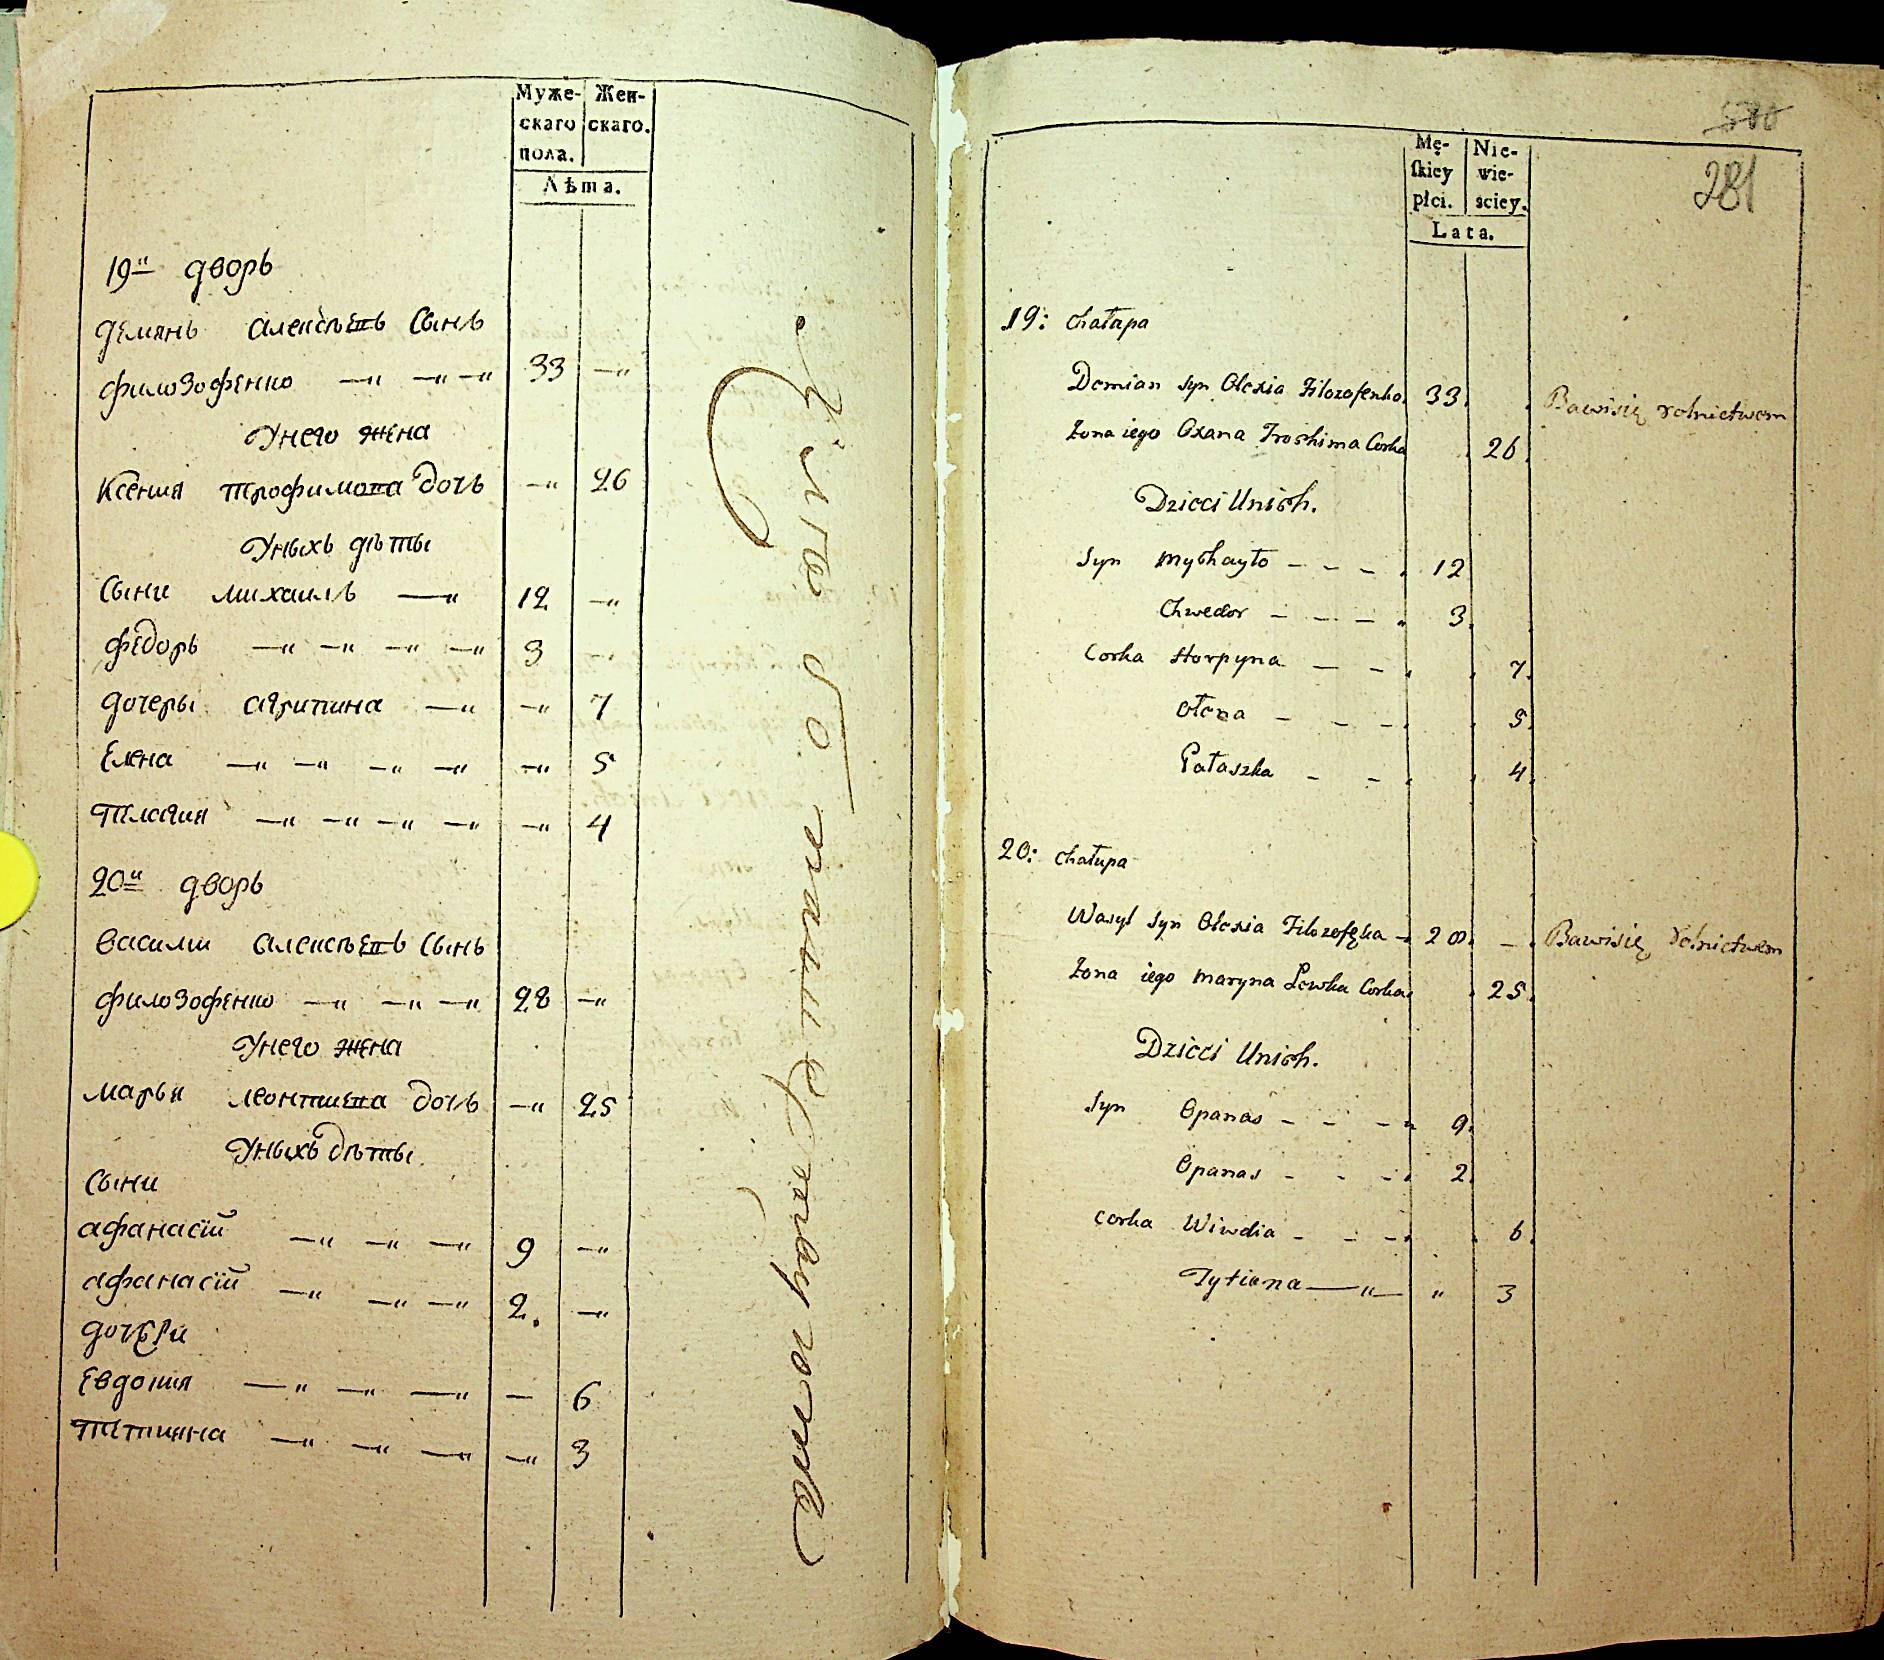 Муже-
скаго
пола.
Жен-
скаго.
Лѣта.
19й дворъ
демянъ алексѣевъ сынъ
филозофенко —„ —„ —„ 33 —„
Унего жена
Ксения трофимова дочь —„ 26
Уныхъ дѣты
сыни михаилъ —„ 12 —„
федоръ —„ —„ —„ —„ 3 —„
дочеры агрипина —„ —„ 7
Елена —„ —„ —„ —„ —„ 5
—„ —„ —„ —„ —„ 4
20й дворъ
василии алексѣевъ сынъ
филозофенко —„ —„ —„ 28 —„
Унего жена
марья леонтиева дочь —„ 25
Уныхъ дѣты
сыни
афанасїй —„ —„ —„ 9 —„
афанасїй —„ —„ —„ 2. —„
дочери
Евдокия —„ —„ —„ — 6
татияна —„ —„ —„ —„ 3
Mę-
ſkiey
płci.
Nie-
wie-
sciey.
Lata.
281
19: chałupa
Demian syn Olexia Filozofenko 33. Bawisię rolnictwem
Żona iego Oxana Trochima Corka 26.
Dzieci Unich.
Syn Mychayło - - - 12
Chwedor - - - 3.
Corka Horpyna - - 7.
Ołena - - - 5.
Pałaszka - - 4.
20: chałupa
Wasyl syn Olexia Filozofęka - 28. - Bawisię rolnictwem
Żona iego Maryna Lewka Corka 25.
Dzieci Unich.
Syn Opanas - - - 9.
Opanas - - - 2.
Corka Wiwdia - - - 6.
Tytiana —„— „ 3